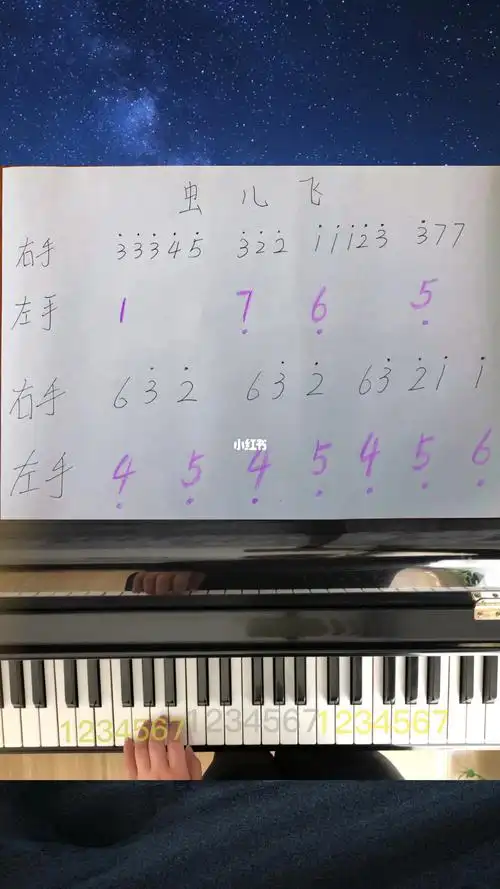 虫儿飞
右手 3̇3̇3̇4̇5̇ 3̇2̇2̇ 1̇1̇1̇2̇3̇ 3̇77
左手 1 7̣ 6̣ 5̣
右手 63̇ 2̇ 63̇ 2̇ 63̇ 2̇1̇ 1̇
小红书
左手 4̣ 5̣ 4̣ 5̣ 4̣ 5̣ 6̣
1234567 1234567 1234567